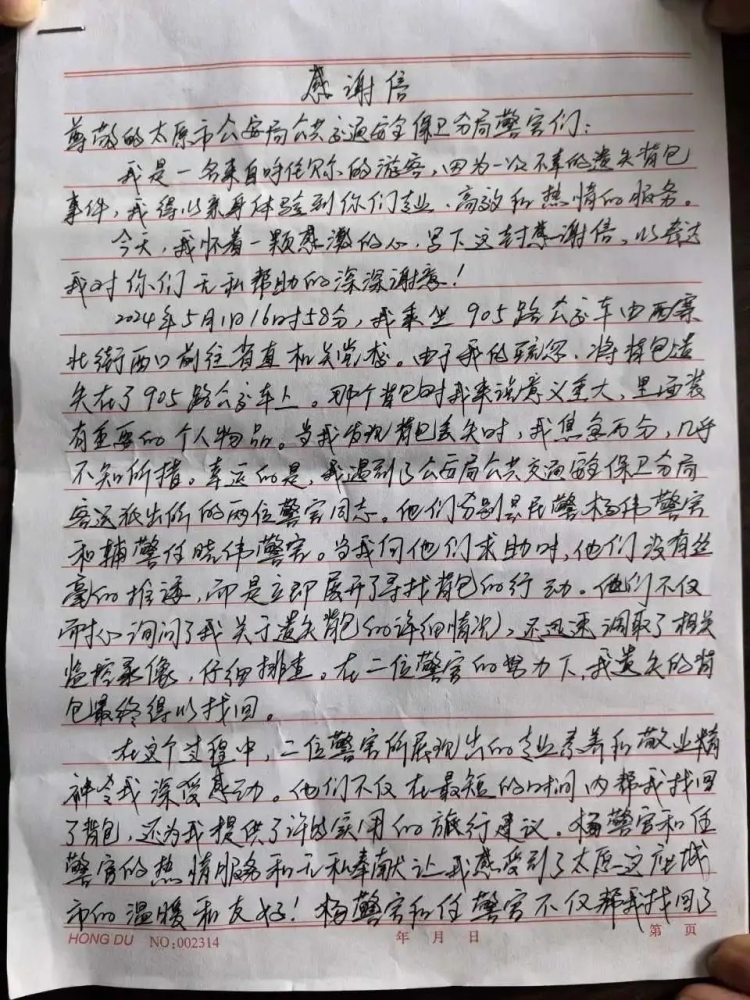 感谢信
尊敬的太原市公安局公共交通安全保卫分局警官们：
我是一名来自呼伦贝尔的游客，因为一次不幸的遗失背包
事件，我得以亲身体验到你们专业、高效和热情的服务。
今天，我怀着一颗感激的心，写下这封感谢信，以表达
我对你们无私帮助的深深谢意！
2024年5月1日16时58分，我乘坐905路公交车由西寨
北街西口前往省直机关党校。由于我的疏忽，将背包遗
失在了905路公交车上。那个背包对我来说意义重大，里面装
有重要的个人物品。当我发现背包丢失时，我焦急万分，几乎
不知所措。幸运的是，我遇到了公安局公共交通安全保卫分局
客运派出所的两位警官同志。他们分别是民警杨伟警官
和辅警任晓伟警官。当我向他们求助时，他们没有丝
毫的推诿，而是立即展开了寻找背包的行动。他们不仅
耐心询问了我关于遗失背包的详细情况，还迅速调取了相关
监控录像，仔细排查。在二位警官的努力下，我遗失的背
包最终得以找回。
在这个过程中，二位警官所展现出的专业素养和敬业精
神令我深受感动。他们不仅在最短的时间内帮我找回
了背包，还为我提供了许多实用的旅行建议。杨警官和任
警官的热情服务和无私奉献让我感受到了太原这座城
市的温暖和友好！杨警官和任警官不仅帮我找回了
HONG DU NO:002314 年 月 日 第 页